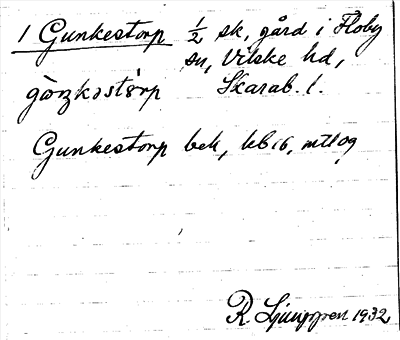 1 Gunkestorp ½ sk, gård i Floby
sn, Vilske hd,
Skarab. l.
Gunkestorp bek, kb
R Ljunggren 1932